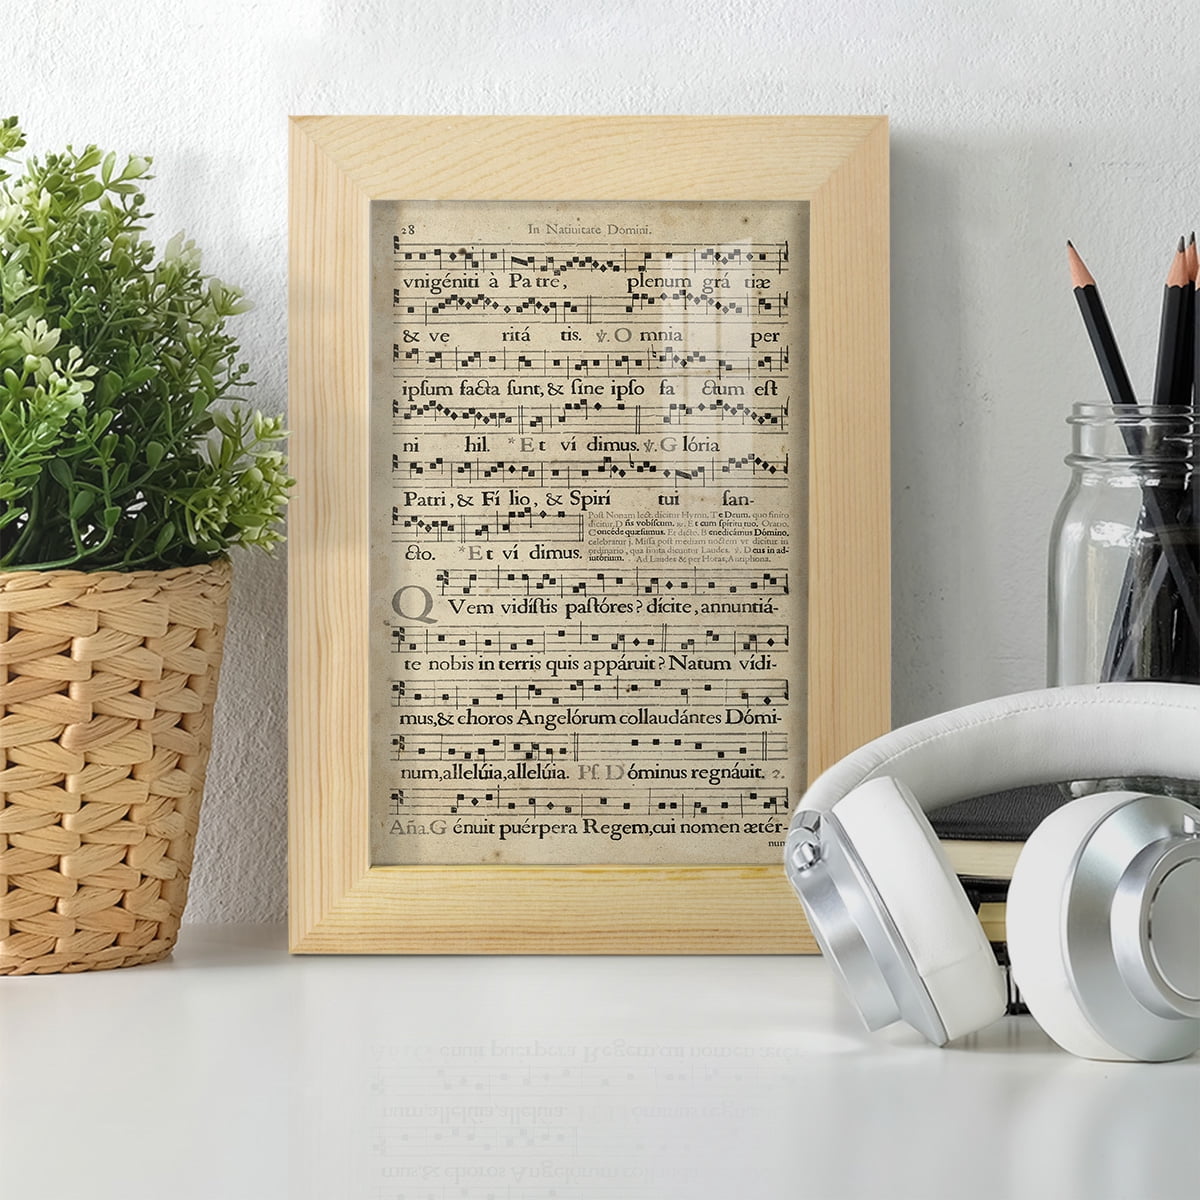 28 In Natiuitate Domini.
vnigéniti à Pa tre, plenum grá tiæ
& ve ritá tis. ℣. O mnia per
ipſum facta ſunt, & ſine ipſo fa ctum eſt
ni hil. *Et ví dimus. ℣. G lória
Patri, & Fí lio, & Spirí tui ſan-
cto. *Et ví dimus.
Poſt Nonam lect. dicitur Hymn. Te Deum. quo finito
dicitur, D ñs vobiſcum. ℟. Et cum ſpiritu tuo. Oratio.
Concéde quæſumus. Et dicto, Benedicámus Dómino,
celebratur j. Miſſa poſt mediam noctem vt dicitur in
ordinario, qua finita dicuntur Laudes. ℣. Deus in ad-
iutórium. Ad Laudes & per Horas, Antiphona.
QVem vidíſtis paſtóres? dícite, annuntiá-
te nobis in terris quis appáruit? Natum vídi-
mus, & choros Angelórum collaudántes Dómi-
num, allelúia, allelúia. Pſ. Dóminus regnáuit. 2.
Aña. G énuit puérpera Regem, cui nomen ætér-
num